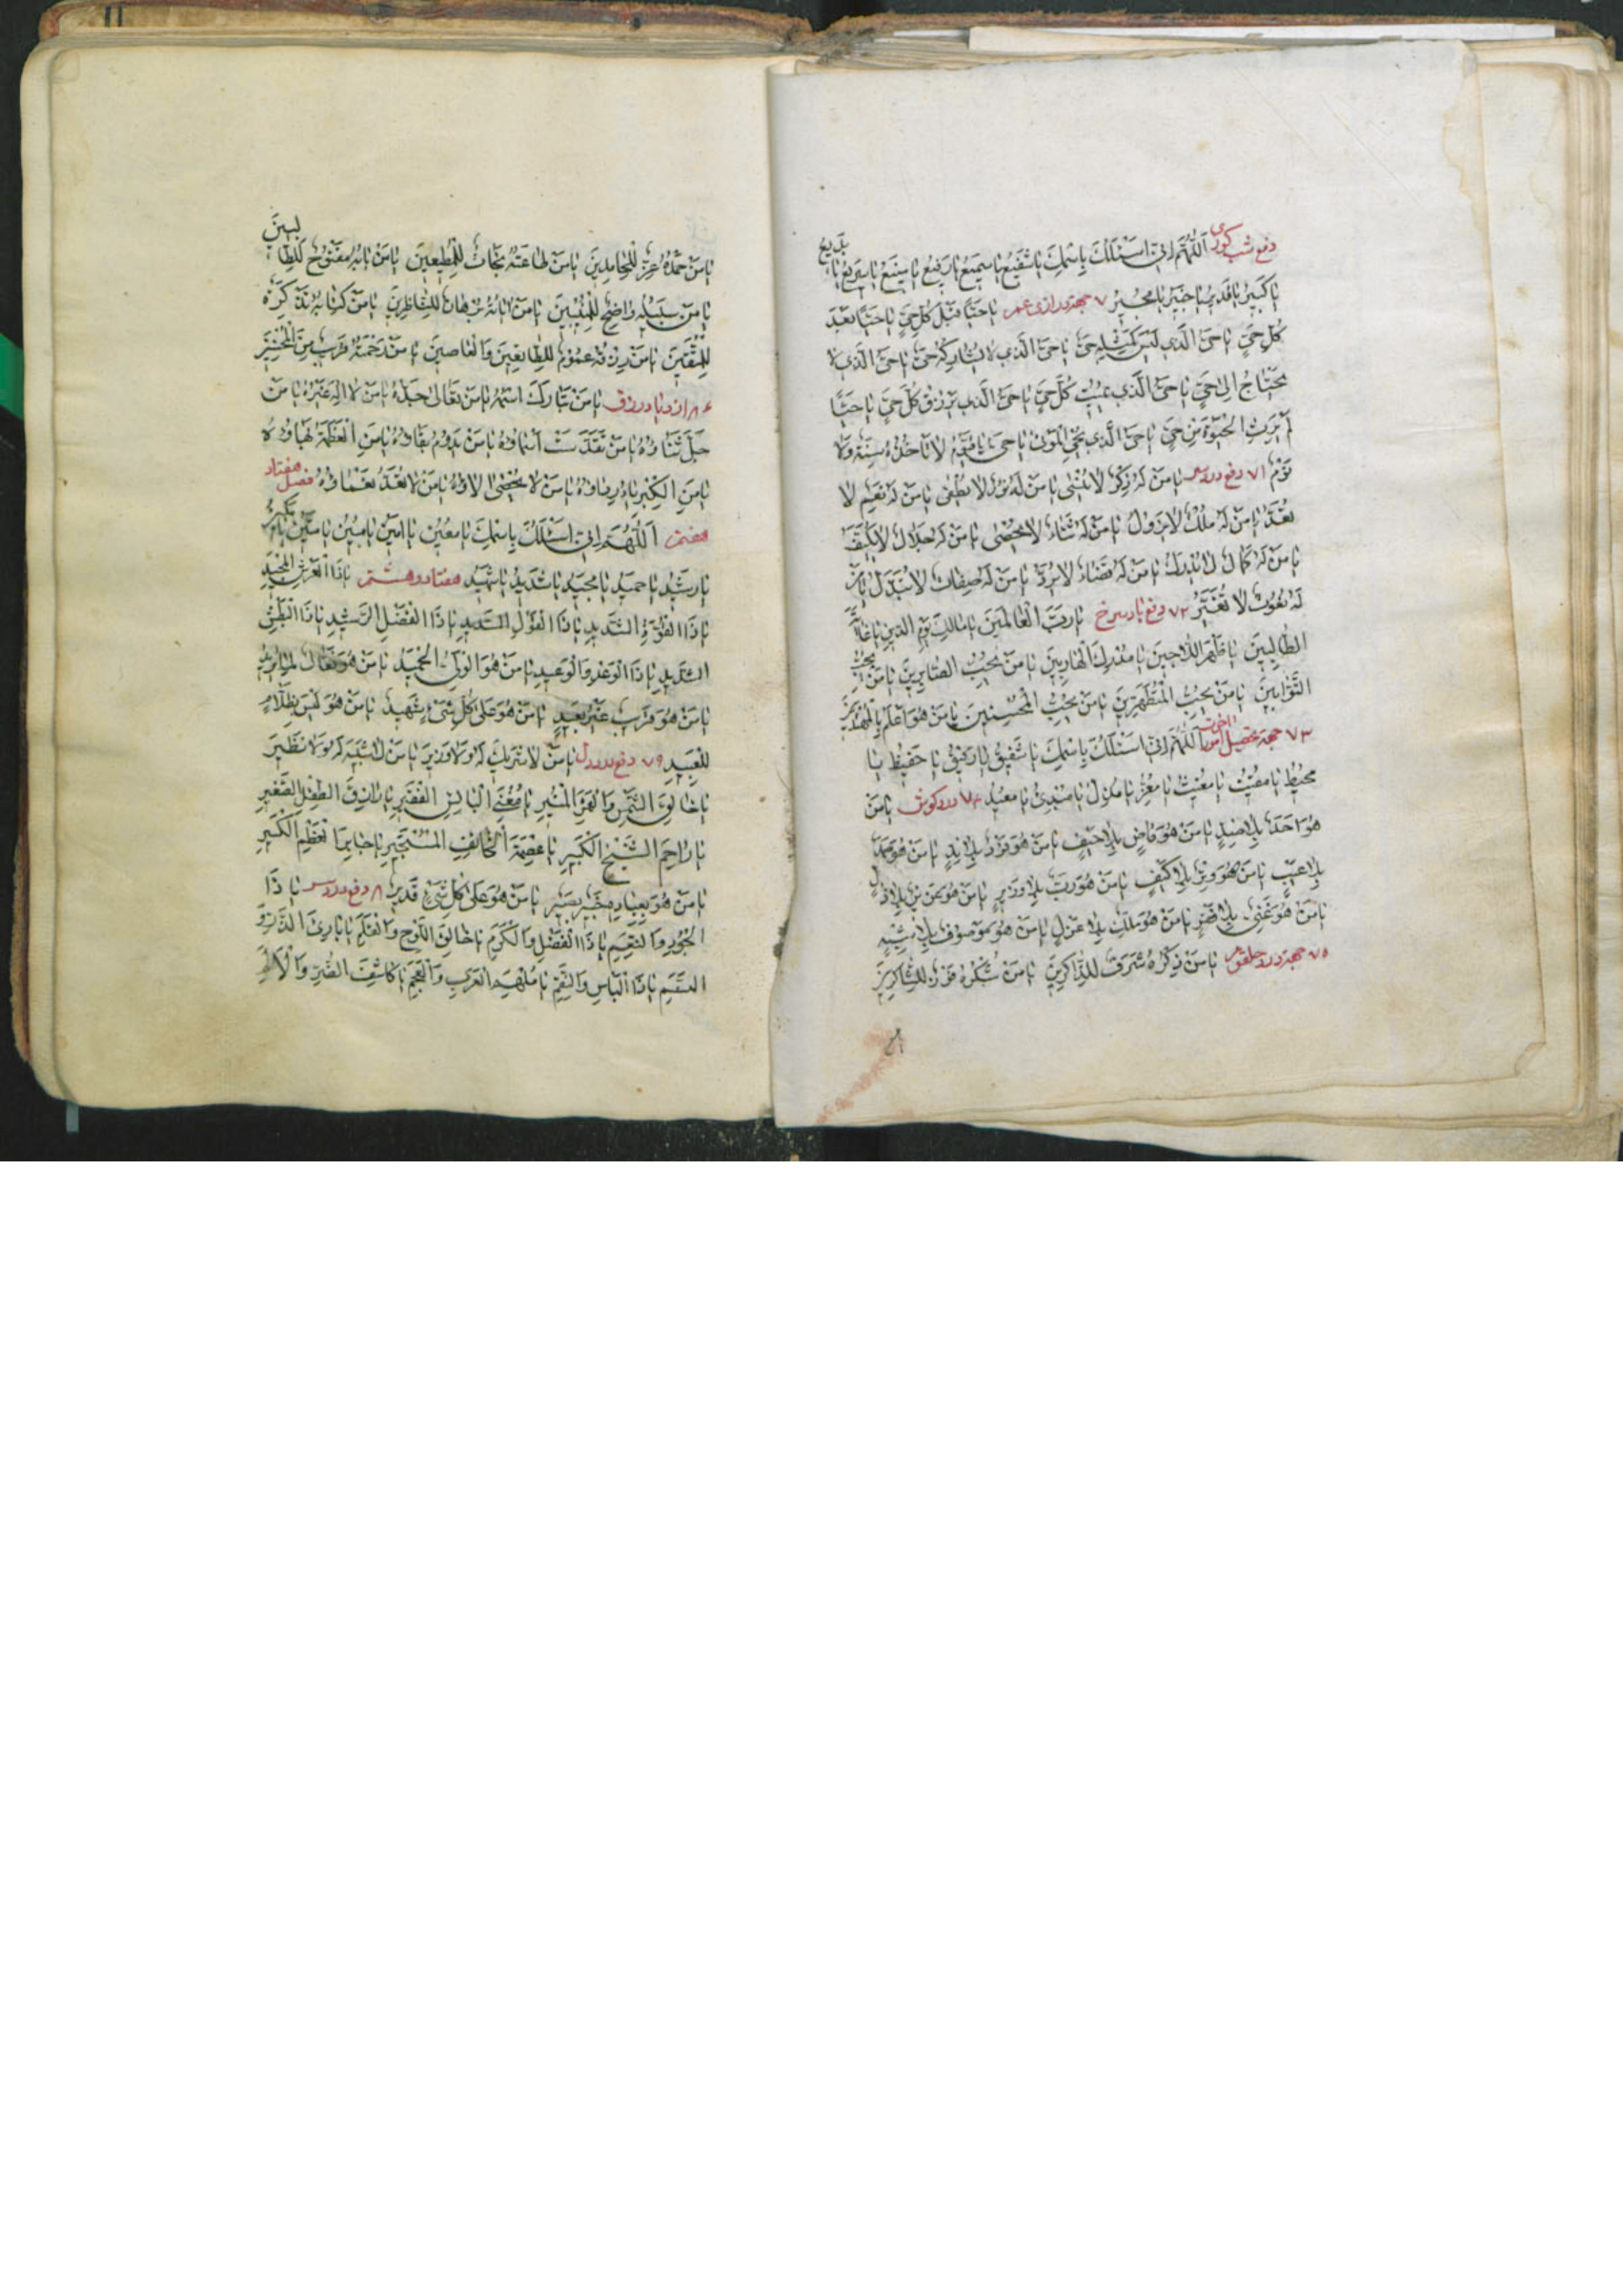 دفع شب کوری اَللّٰهُمَّ اِنّی اَسْئَلُكَ بِاسْمِكَ یا شَفیعُ یا سَمیعُ یا رَفیعُ یا مَنیعُ یا سَریعُ یا بَدیعُ
یا كَبیرُ یا قَدیرُ یا خَبیرُ یا مُجیرُ ۷ جهة درازی عمر یا حَیّاً قَبْلَ كُلِّ حَیٍّ یا حَیّاً بَعْدَ
كُلِّ حَیٍّ یا حَیُّ الَّذی لَیْسَ كَمِثْلِهِ حَیٌّ یا حَیُّ الَّذی لا یُشارِكُهُ حَیٌّ یا حَیُّ الَّذی لا
یَحْتاجُ اِلی حَیٍّ یا حَیُّ الَّذی یُمیتُ كُلَّ حَیٍّ یا حَیُّ الَّذی یَرْزُقُ كُلَّ حَیٍّ یا حَیّاً
لَمْ یَرِثِ الْحَیٰوةَ مِنْ حَیٍّ یا حَیُّ الَّذی یُحْیِ الْمَوْتی یا حَیُّ یا قَیُّومُ لا تَأخُذُهُ سِنَةٌ وَلا
نَوْمٌ ۷۱ دفع درد سر یا مَنْ لَهُ ذِكْرٌ لا یُنْسٰی یا مَنْ لَهُ نُورٌ لا یُطْفٰی یا مَنْ لَهُ نِعَمٌ لا
تُعَدُّ یا مَنْ لَهُ مُلْكٌ لا یَزُولُ یا مَنْ لَهُ ثَناءٌ لا یُحْصٰی یا مَنْ لَهُ جَلالٌ لا یُكَیَّفُ
یا مَنْ لَهُ كَمالٌ لا یُدْرَكُ یا مَنْ لَهُ قَضاءٌ لا یُرَدُّ یا مَنْ لَهُ صِفاتٌ لا تُبَدَّلُ یا مَنْ
لَهُ نُعُوتٌ لا تُغَیَّرُ ۷۲ دفع باد سرخ یا رَبَّ الْعالَمینَ یا مالِكَ یَوْمِ الدّینِ یا غایَةَ
الطّالِبینَ یا ظَهْرَ اللّاجینَ یا مُدْرِكَ الْهارِبینَ یا مَنْ یُحِبُّ الصّابِرینَ یا مَنْ یُحِبُّ
التَّوّابینَ یا مَنْ یُحِبُّ الْمُتَطَهِّرینَ یا مَنْ یُحِبُّ الْمُحْسِنینَ یا مَنْ هُوَ اَعْلَمُ بِالْمُهْتَدینَ
۷۳ جهة تحصیل اَللّٰهُمَّ اِنّی اَسْئَلُكَ بِاسْمِكَ یا شَفیقُ یا رَفیقُ یا حَفیظُ یا
مُحیطُ یا مُقیتُ یا مُغیثُ یا مُعِزُّ یا مُذِلُّ یا مُبْدِئُ یا مُعیدُ ۷۴ درد کوش یا مَنْ
هُوَ اَحَدٌ بِلا ضِدٍّ یا مَنْ هُوَ قاضٍ بِلا حَیْفٍ یا مَنْ هُوَ فَرْدٌ بِلا نِدٍّ یا مَنْ هُوَ صَمَدٌ
بِلا عَیْبٍ یا مَنْ هُوَ وِتْرٌ بِلا كَیْفٍ یا مَنْ هُوَ رَبٌّ بِلا وَزیرٍ یا مَنْ هُوَ عَزیزٌ بِلا ذُلٍّ
یا مَنْ هُوَ غَنِیٌّ بِلا فَقْرٍ یا مَنْ هُوَ مَلِكٌ بِلا عَزْلٍ یا مَنْ هُوَ مَوْصُوفٌ بِلا شَبیهٍ
۷۵ جهة درد حلق یا مَنْ ذِكْرُهُ شَرَفٌ لِلذّاكِرینَ یا مَنْ شُكْرُهُ فَوْزٌ لِلشّاكِرینَ
یا مَنْ حَمْدُهُ عِزٌّ لِلْحامِدینَ یا مَنْ طاعَتُهُ نَجاةٌ لِلْمُطیعینَ یا مَنْ بابُهُ مَفْتُوحٌ لِلطّالِبینَ
یا مَنْ سَبیلُهُ واضِحٌ لِلْمُنیبینَ یا مَنْ ایاتُهُ بُرْهانٌ لِلنّاظِرینَ یا مَنْ كِتابُهُ تَذْكِرَةٌ
لِلْمُتَّقینَ یا مَنْ رِزْقُهُ عُمُومٌ لِلطّائِعینَ وَالْعاصینَ یا مَنْ رَحْمَتُهُ قَریبٌ مِنَ الْمُحْسِنینَ
ازدیاد رزق یا مَنْ تَبارَكَ اسْمُهُ یا مَنْ تَعالٰی جَدُّهُ یا مَنْ لا اِلٰهَ غَیْرُهُ یا مَنْ
جَلَّ ثَناؤُهُ یا مَنْ تَقَدَّسَتْ اَسْماؤُهُ یا مَنْ یَدُومُ بَقاؤُهُ یا مَنِ الْعَظَمَةُ بَهاؤُهُ
یا مَنِ الْكِبْرِیاءُ رِداؤُهُ یا مَنْ لا یُحْصٰی الاؤُهُ یا مَنْ لا تُعَدُّ نَعْماؤُهُ فصل هفتاد
هفتم اَللّٰهُمَّ اِنّی اَسْئَلُكَ بِاسْمِكَ یا مُعینُ یا اَمینُ یا مُبینُ یا مَتینُ یا مَكینُ
یا رَشیدُ یا حَمیدُ یا مَجیدُ یا شَدیدُ یا شَهیدُ هفتاد و هشتم یا ذَا الْعَرْشِ الْمَجیدِ
یا ذَا الْقُوَّةِ الشَّدیدِ یا ذَا الْقَوْلِ السَّدیدِ یا ذَا الْفَضْلِ الرَّشیدِ یا ذَا الْبَطْشِ
الشَّدیدِ یا ذَا الْوَعْدِ وَالْوَعیدِ یا مَنْ هُوَ الْوَلِیُّ الْحَمیدُ یا مَنْ هُوَ فَعّالٌ لِما یُریدُ
یا مَنْ هُوَ قَریبٌ غَیْرُ بَعیدٍ یا مَنْ هُوَ عَلٰی كُلِّ شَیْءٍ شَهیدٌ یا مَنْ هُوَ لَیْسَ بِظَلّامٍ
لِلْعَبیدِ ۷۹ دفع درد دل یا مَنْ لا شَریكَ لَهُ وَلا وَزیرَ یا مَنْ لا شَبیهَ لَهُ وَلا نَظیرَ
یا خالِقَ الشَّمْسِ وَالْقَمَرِ الْمُنیرِ یا مُغْنِیَ الْبائِسِ الْفَقیرِ یا رازِقَ الطِّفْلِ الصَّغیرِ
یا راحِمَ الشَّیْخِ الْكَبیرِ یا عِصْمَةَ الْخائِفِ الْمُسْتَجیرِ یا جابِرَ الْعَظْمِ الْكَسیرِ
یا مَنْ هُوَ بِعِبادِهِ خَبیرٌ بَصیرٌ یا مَنْ هُوَ عَلٰی كُلِّ شَیْءٍ قَدیرٌ ۸ دفع درد سر یا ذَا
الْجُودِ وَالنِّعَمِ یا ذَا الْفَضْلِ وَالْكَرَمِ یا خالِقَ اللَّوْحِ وَالْقَلَمِ یا بارِئَ الذَّرِّ وَ
النَّسَمِ یا ذَا الْبَأسِ وَالنِّقَمِ یا مُلْهِمَ الْعَرَبِ وَالْعَجَمِ یا كاشِفَ الضُّرِّ وَالْاَلَمِ